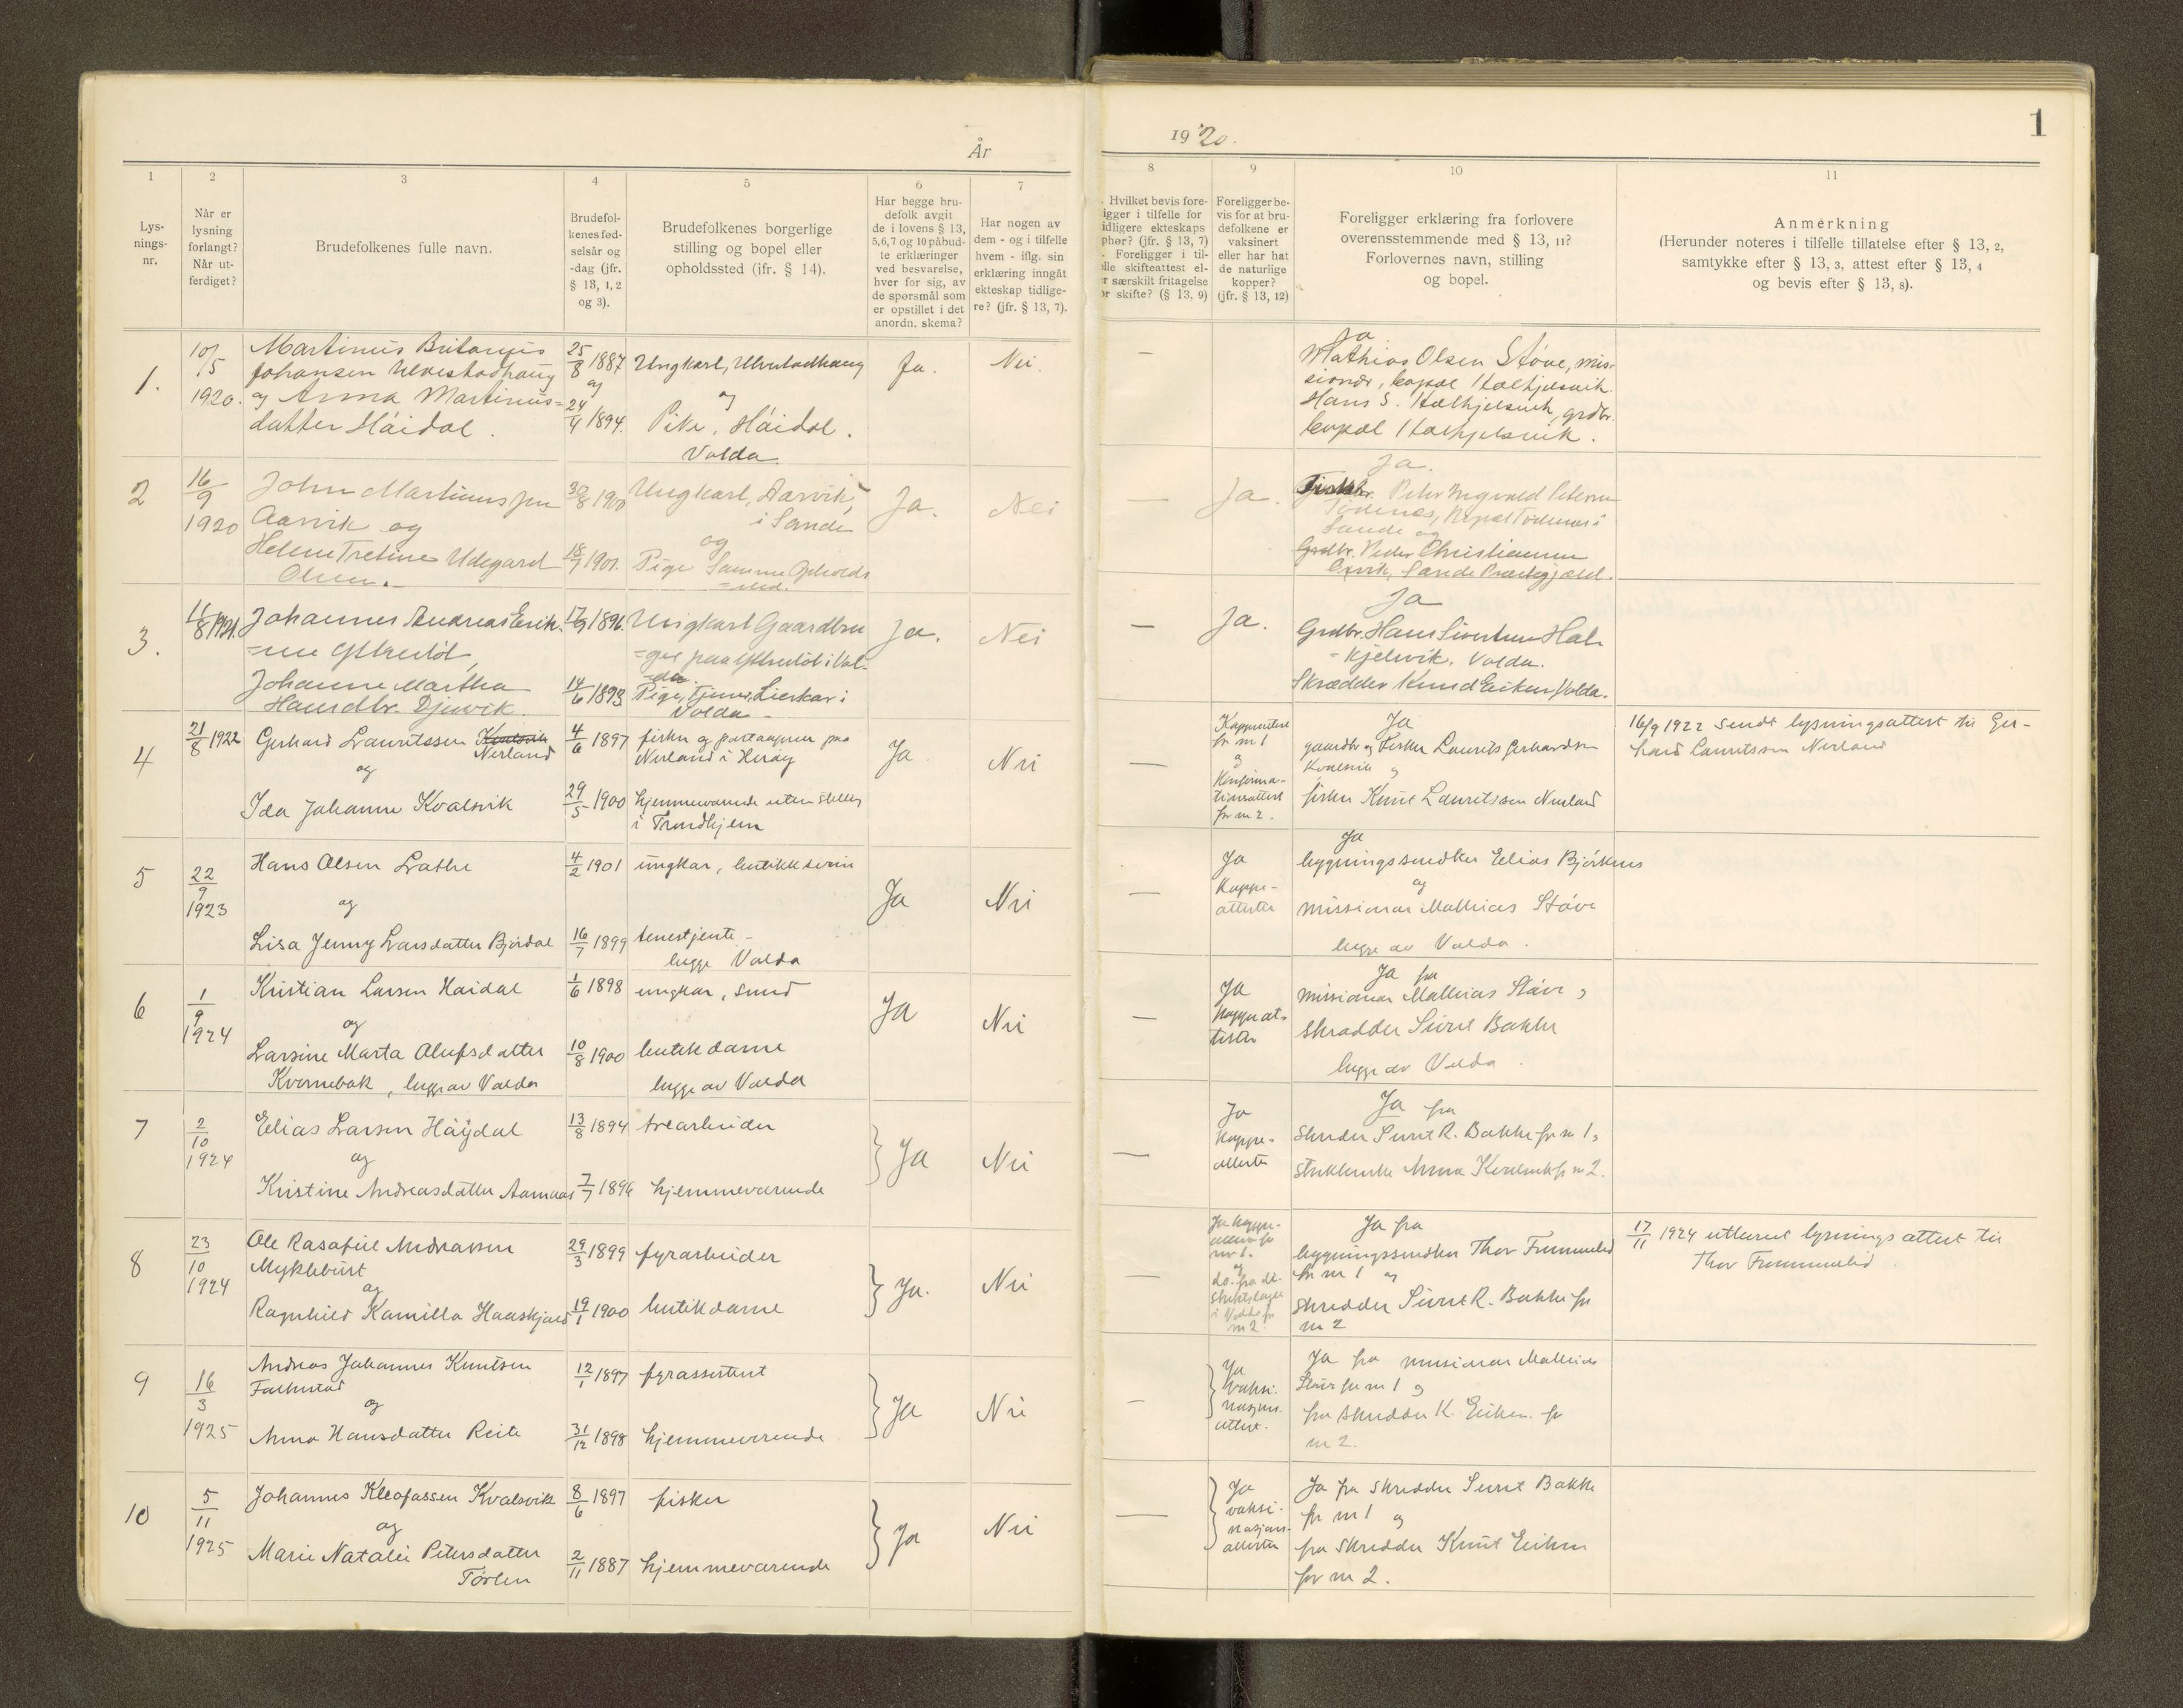 År
1920.
1
1
2
3
4
5
6
7
8
9
10
11
Lys-
nings-
nr.
Når er
lysning
forlangt?
Når ut-
ferdiget?
Brudefolkenes fulle navn.
Brudefol-
kenes fød-
selsår og
-dag (jfr.
§ 13, 1, 2
og 3).
Brudefolkenes borgerlige
stilling og bopel eller
opholdssted (jfr. § 14).
Har begge bru-
defolk avgit
de i lovens § 13,
5,6,7 og 10 påbud-
te erklæringer
ved besvarelse,
hver for sig, av
de spørsmål som
er opstillet i det
anordn. skema?
Har nogen av
dem - og i tilfelle
hvem - iflg. sin
erklæring inngått
ekteskap tidlige-
re? (jfr. § 13, 7).
Hvilket bevis fore-
igger i tilfelle for
idligere ekteskaps
phør? (jfr. § 13, 7)
. Foreligger i til-
lle skifteattest el-
r særskilt fritagelse
or skifte? (§ 13, 9)
Foreligger be-
vis for at bru-
defolkene er
vaksinert
eller har hat
de naturlige
kopper?
(jfr. § 13, 12)
Foreligger erklæring fra forlovere
overensstemmende med § 13, 11?
Forlovernes navn, stilling
og bopel.
Anmerkning
(Herunder noteres i tilfelle tillatelse efter § 13, 2,
samtykke efter § 13, 3, attest efter § 13, 4
og bevis efter § 13, 8).
1.
10/5
1920.
Martinus Britanus
Johansen Ulvestadhaug
og Anna Martinus=
datter Háidal.
25/8 1887
og
24/4 1894.
Ungkarl, Ulvestadhaug
og
Pike, Háidal.
Volda
Ja.
Nei.
—
Ja
Mathias Olsen Støve, mis-
sionær, bopæl Halkjelsvik.
Hans S. Halkjelsvik, grdbr.
bopæl Halkjelsvik.
2
16/9
1920
John Martinussen
Aarvik og
Helene Tretine Udegard
Olsen.
30/8 1900
18/7 1901.
Ungkarl, Aarvik,
i Sande
og
Pige Samme Opholds
=sted.
Ja.
Nei
—
Ja.
Ja.
Peter Ingvald Petersen
Sande og
Grdbr. Peder Christiansen
Sande Præstegjæld.
3.
11/8 1921.
Johannes Andreas Erik-
=sen
Johanne Martha
Hansdtr. Djuvik.
17/9 1896.
14/6 1893
Ungkarl Gaardbru
=ger paa i Vol-
=da.
Pige, Tjener, Lierskar i
Volda
Ja.
Nei
—
Ja.
Ja
Grdbr. Hans Sivertsen Hal-
=kjelsvik, Volda.
Skrædder Knud Eiksen, Volda.
4
21/8 1922
Gerhard Lauritssen Kvalsvik
Nerland
og
Ida Johanne Kvalsvik
4/6 1897
29/5 1900
fisker og postaapner paa
Nerland i Herøy
hjemmeværende uten stilling
i Trondhjem
Ja
Nei
—
Koppeattest
for nr 1
og
Konfirma-
tionsattest
for nr 2.
Ja
gaardbr og Fisker Laurits Gerhardsen
Kvalsvik og
fisker Knut Lauritssen Nerland
16/9 1922 sendt lysningsattest til Ger-
hard Lauritssen Nerland
5
22/9
1923
Hans Olsen Lathe
og
Lisa Jenny Larsdatter Bjørdal
4/2 1901
16/7 1899
ungkar, butikksvein
tenestjente -
begge Volda
Ja
Nei
—
Ja
Koppe-
attester
Ja
bygningssnedker Elias Bjørknes
og
missionær Mathias Støve
begge av Volda.
6
1/9
1924
Kristian Larsen Haidal
og
Larsine Marta Olufsdatter
Kvernebak, begge av Volda
1/6 1898
10/8 1900
ungkar, smed
butikdame
begge av Volda
Ja
Nei
—
Ja
koppeat-
tester
Ja fra
missionær Mathias Støve og
skrædder Sivert Bakke
begge av Volda.
7
2/10
1924
Elias Larsen Háydal
og
Kristine Andreasdatter Aamaas
13/8 1894
7/7 1896
trearbeider
hjemmeværende
Ja
Nei
—
Ja
koppe-
attester
Ja fra
skreder Sivert R. Bakke for nr 1,
Anna for nr 2.
8
23/10
1924
Ole Rasafiel Andreassen
Myklebust
og
Ragnhild Kamilla Haaskjold
29/3 1899
19/1 1900
fyrarbeider
butikdame
Ja.
Nei
—
Ja koppe-
attest for
nr 1.
og
do. fra di-
striktslæge
i Volda for
nr 2
Ja fra
bygningssnedker Thor Frummelid
for nr 1 og
skredder Sivert R. Bakke for
nr 2
17/11 1924 utlevert lysningsattest til
Thor Frummelid.
9
16/3
1925
Andreas Johannes Knutsen
Falkestad
og
Anna Hansdatter Reite
12/1 1897
31/12 1898
fyrassistent
hjemmeværende
Ja
Nei
—
Ja
vaksi-
nasjons-
attest.
Ja fra missionær Mathias
Støve for nr 1 og
fra skredder K. Eiksen for
nr 2.
10
5/11
1925
Johannes Kleofassen Kvalsvik
og
Marie Natalie Petersdatter
Tørlen
8/6 1897
2/11 1887
fisker
hjemmeværende
Ja
Nei
—
Ja
vaksi-
nasjons-
attester
Ja fra Skredder Sivert Bakke
for nr 1 og
fra Skredder Knut Eiksen
for nr 2.